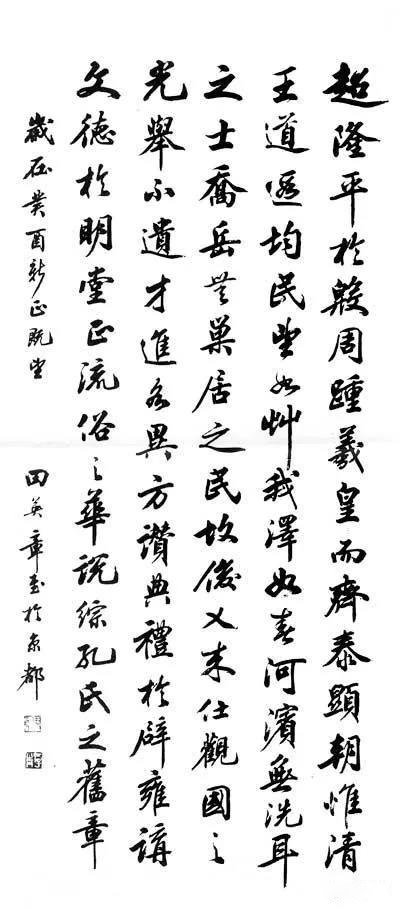 超隆平於殷周踵羲皇而齊泰顯朝惟清
王道遐均民望如艸我澤如春河濱無洗耳
之士喬岳無巢居之民故俊乂来仕觀國之
光舉不遺才進各異方讚典禮於辟雍講
文德於明堂正流俗之華說綜孔氏之舊章
歲在癸酉新正既望 田英章書於京都